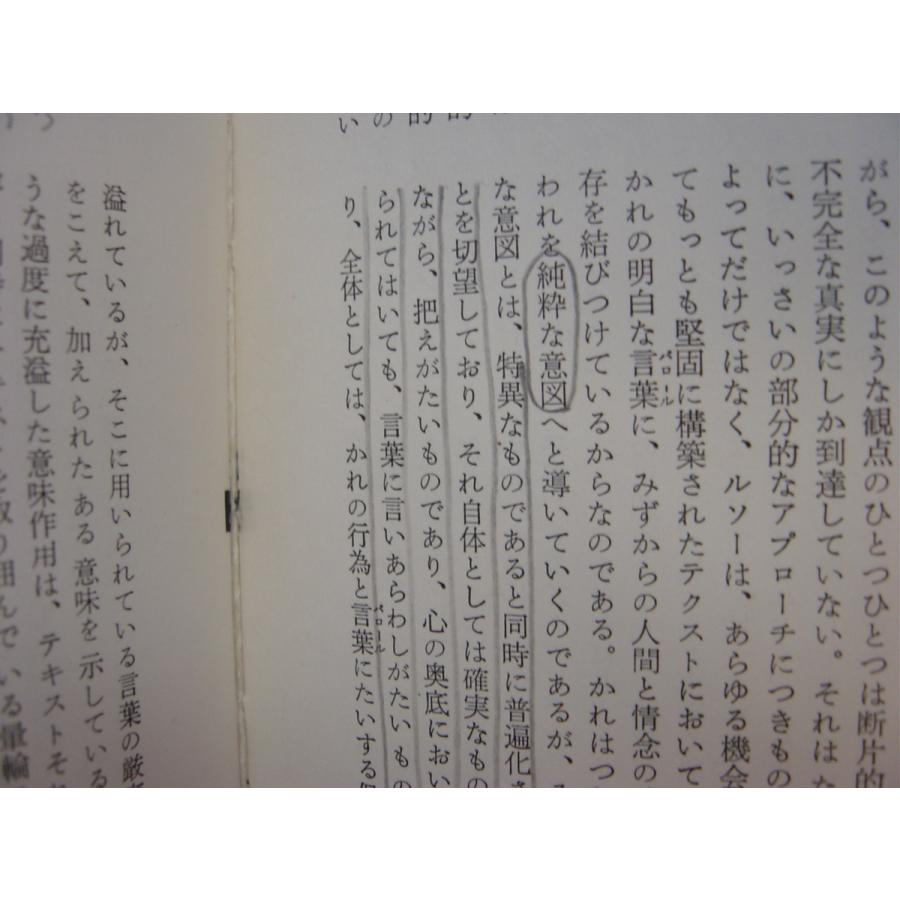 がら、このような観点のひとつひとつは断片的
不完全な真実にしか到達していない。それはた
に、いっさいの部分的なアプローチにつきもの
よってだけではなく、ルソーは、あらゆる機会
てもっとも堅固に構築されたテクストにおいて
かれの明白な言葉パロールに、みずからの人間と情念の
存を結びつけているからなのである。かれはつ
われを純粋な意図へと導いていくのであるが、
な意図とは、特異なものであると同時に普遍化
とを切望しており、それ自体としては確実なもの
ながら、把えがたいものであり、心の奥底におい
られてはいても、言葉に言いあらわしがたいもの
り、全体としては、かれの行為と言葉パロールにたいする
溢れているが、そこに用いられている言葉の厳
をこえて、加えられたある意味を示している
うな過度に充溢した意味作用は、テキストそ